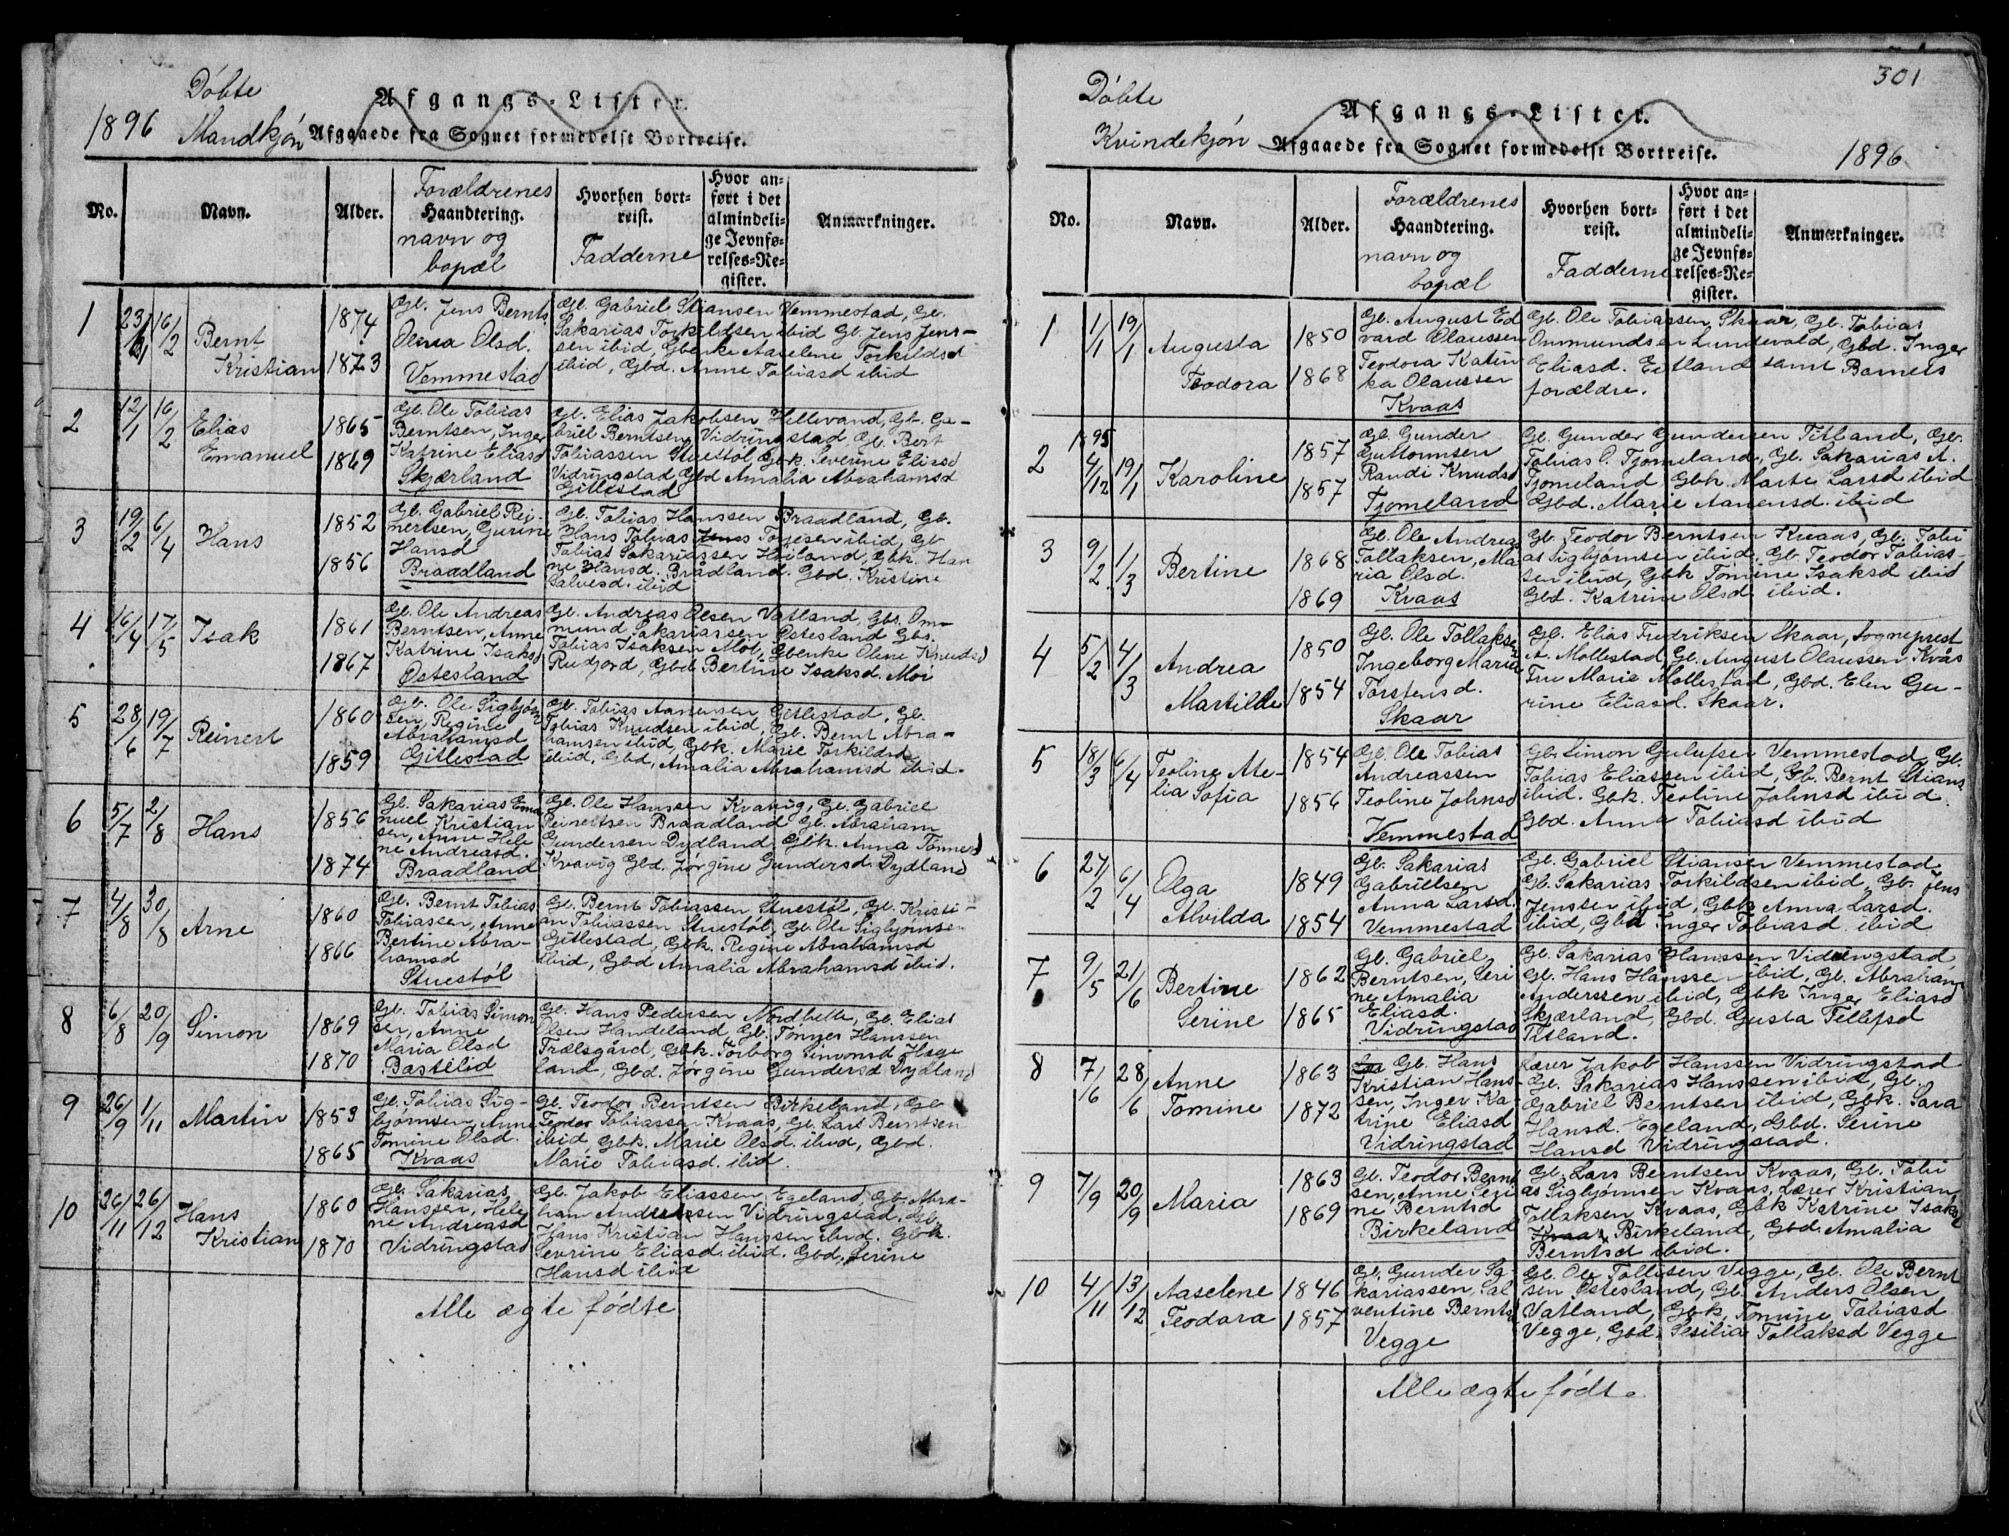 Döbte
1896 Mandkjön
Afgangs-Lister.
Afgaaede fra Sognet formedelst Bortreise.
No.
Navn.
Alder.
Forældrenes
Haandtering.
navn og
bopæl
Hvorhen bort-
reist.
Fadderne
Hvor an-
ført i det
almindeli-
ge Jevnfø-
relses-Re-
gister.
Anmærkninger.
1
16/2
Bernt
Kristian
1874
1873
Gb. Jens Bernts.
Olsd.
Vemmestad
Gb. Gabriel Stiansen Vemmestad, Gb.
Sakarias Torkildsen ibid Gb. Jens Jens-
sen ibid, Gbenke Aaselene Torkildsd
ibid, Gbd. Anne Tobiasd ibid
2
12/1 16/2
Elias
Emanuel
1865
1869
Gb. Ole Tobias
Berntsen, Inger
Katrine Eliasd
Skjærland
Gb. Elias Jakobsen Hellevand, Gb. Ga-
briel Berntsen Vidringstad, Gb. Bert
Tobiassen Stuestöl Gbk. Severine Eliasd
Vidringstad Gbd Amalia Abrahamsd
Gitlestad
3
19/2 6/4
Hans
1852
1856
Gb. Gabriel Rei-
nertsen, Gurine
Hansd
Braadland
Gb. Tobias Hanssen Braadland, Gb.
Hans Tobias Jens Torjesen ibid, Gb
Tobias Sakariassen Heiland, Gbk. Han
ne Hansd. Brådland. Gbd. Kristine
Salvesd. ibid
4
16/4 17/5
Isak
1861
1867
Gb. Ole Andreas
Berntsen, Anne
Katrine Isaksd
Østesland
Gb. Andreas Olsen Vatland, Gbs. Om-
mund Sakariassen Østesland Gbs.
Tobias Isaksen Moi, Gbenke Oline Knudsd
Rudjord, Gbd Bertine Isaksd. Moi
5
28/6 19/7
Reinert
1860
1859
Gb. Ole Sigbjörn
sen, Regine
Abrahamsd
Gitlestad
Gb. Tobias Aanensen Gitlestad, Gb.
Tobias Knudsen ibid, Gb. Bernt Abra-
hamsen ibid, Gbk. Marie Torkildsd
ibid, Gbd, Amalia Abrahamsd ibid.
6
5/7 2/8
Hans
1856
1874
Gb. Sakarias Ema
nuel Kristian
sen, Anne Hele
ne Andreasd.
Braadland
Gb. Ole Hanssen Kvavig, Gb. Gabriel
Reinertsen Braadland Gb. Abraham
Gundersen Dydland, Gbk. Anna Tönnesd
Kvavig Gbd. Jörgine Gundersd Dydland
7
4/8 30/8
Arne
1860
1866
Gb. Bernt Tobias
Tobiassen, Anne
Bertine Abra-
hamsd
Stuestöl
Gb. Bernt Tobiassen Stuestöl, Gb. Kristi-
an Tobiassen Stuestöl, Gb. Ole Sigbjörnsen
Gitlestad, Gbk. Regine Abrahamsd
ibid, Gbd Amalia Abrahamsd ibid.
8
6/8 20/9
Simon
1869
1870
Gb. Tobias Simon
sen, Anne
Maria Olsd
Bastelid
Gb. Hans Pedersen Nordhelle, Gb. Elias
Olsen Handeland, Gb. Tönnes Hanssen
Trælsgård, Gbk. Torborg Simonsd Hæge
land, Gbd. Jörgine Gundersd Dydland
9
26/9 1/11
Martin
1853
1865
Gb. Tobias Sig-
björnsen, Anne
Tomine Olsd.
Kvaas
Gb. Teodor Berntsen Birkeland, Gb
Teodor Tobiassen Kvaas, Gb. Lars Berntsen
ibid, Gbk. Marie Olsd. ibid, Gbd.
Marie Tobiasd. ibid.
10
26/11 26/12
Hans
Kristian
1860
1870
Gb. Sakarias
Hanssen, Hele
ne Andreasd
Vidringstad
Gb. Jakob Eliassen Egeland, Gb. Abra-
ham Anderssen Vidringstad, Gb.
Hans Kristian Hanssen ibid. Gbk.
Severine Eliasd ibid. Gbd, Serine
Hansd ibid
Alle ægte födte
301
Döbte
Kvindekjön
Afgangs-Lister.
Afgaaede fra Sognet formedelst Bortreise.
1896
No.
Navn.
Alder.
Forældrenes
Haandtering.
navn og
bopæl
Hvorhen bort-
reist.
Fadderne
Hvor an-
ført i det
almindeli-
ge Jevnfø-
relses-Re-
gister.
Anmærkninger.
1
1/1 19/1
Augusta
Teodora
1850
1868
Gb. August Ed
vard Olaussen
Teodora Katin
ka Olaussen
Kvaas
Gb. Ole Tobiassen Skaar, Gb. Tobias
Ommundsen Lundevold, Gbd. Inger
Eliasd. Eitland samt Barnets
forældre.
2
1895
4/12 19/1
Karoline
1857
1857
Gb. Gunder
Guttormsen
Randi Knudsd
Tjomeland
Gb. Gunder Gundersen Titland, Gb.
Tobias O. Tjomeland, Gb. Sakarias A.
Tjomeland, Gbk. Marte Larsd ibid
Gbd. Marie Aanensd. ibid
3
9/2 1/3
Bertine
1868
1869
Gb. Ole Andreas
Tollaksen, Ma
ria Olsd.
Kvaas
Gb. Teodor Berntsen Kvaas, Gb. Tobi
as Sigbjörnsen ibid, Gb. Teodor Tobias-
sen ibid, Gbk Tomine Isaksd ibid
Gbd. Katrine Olsd ibid.
4
5/2 4/3
Andrea
Martilde
1850
1854
Gb. Ole Tollaksen
Ingeborg Maria
Torstensd.
Skaar
Gb. Elias Fredriksen Skaar, Sogneprest
A. Mollestad, Gb. August Olaussen Kvås
Fru Marie Mollestad, Gbd. Elen Gu-
rine Eliasd. Skaar.
5
18/3 6/4
Teoline Ate-
lia Sofia
1854
1856
Gb. Ole Tobias
Andreassen
Teoline Johnsd
Vemmestad
Gb. Simon Gulufsen Vemmestad, Gb.
Tobias Eliassen ibid, Gb. Bernt Stians.
ibid. Gbk. Teoline Johnsd ibid.
Gbd. Anna Tobiasd ibid
6
27/2 6/4
Olga
Alvilda
1849
1854
Gb. Sakarias
Gabrielsen
Anna Larsd.
Vemmestad
Gb. Gabriel Stiansen Vemmestad
Gb. Sakarias Torkildsen ibid, Gb. Jens
Jenssen ibid, Gbk Anna Larsd.
ibid, Gbd Inger Tobiasd. ibid
7
9/5 21/6
Bertine
Serine
1862
1865
Gb. Gabriel
Berntsen, Seri
ne Amalia
Eliasd.
Vidringstad
Gb. Sakarias Hanssen Vidringstad,
Gb. Hans Hanssen ibid, Gb. Abraham
Anderssen ibid, Gbk Inger Eliasd
Skjærland, Gbd. Gusta Tellefsd
Titland.
8
7/6 28/6
Anne
Tomine
1863
1872
Gb. Hans
Kristian Hans-
sen, Inger Ka-
trine Eliasd
Vidringstad
Lærer Jakob Hanssen Vidringstad
Gb. Sakarias Hanssen ibid, Gb.
Gabriel Berntsen ibid, Gbk. Sara
Hansd. Egeland, Gbd. Serine
Hansd Vidringstad.
9
7/9 20/9
Maria
1863
1869
Gb. Teodor Bernt
sen, Anne Seri
ne Berntsd
Birkeland
Gb. Lars Berntsen Kvaas, Gb. Tobi
as Sigbjörnsen Kvaas, Lærer Kristian
Tollaksen Kvaas, Gbk Katrine Isaksd
Kvaas Birkeland, Gbd. Amalia
Berntsd ibid.
10
4/11 13/12
Aaselene
Teodora
1846
1857
Gb. Gunder Sa-
kariassen, Sal
ventine Berntsd
Vegge
Gb. Ole Tollisen Vegge, Gb. Ole Bernt
sen Østesland, Gb. Anders Olsen
Vatland, Gbk. Tomine Tobiasd
Vegge, Gbd. Sesilia Tollaksd Vegge
Alle ægte födte